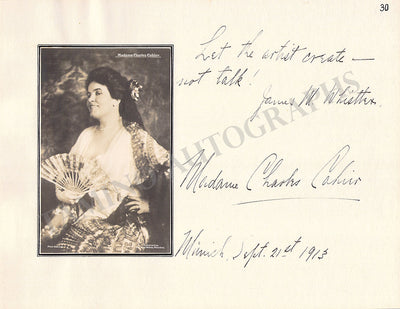 30
Madame Charles Cahier
Let the artist create —
not talk!
James M. Whistler.
Madame Charles Cahier
Münich, Sept. 21st 1913
AUTOGRAPHS